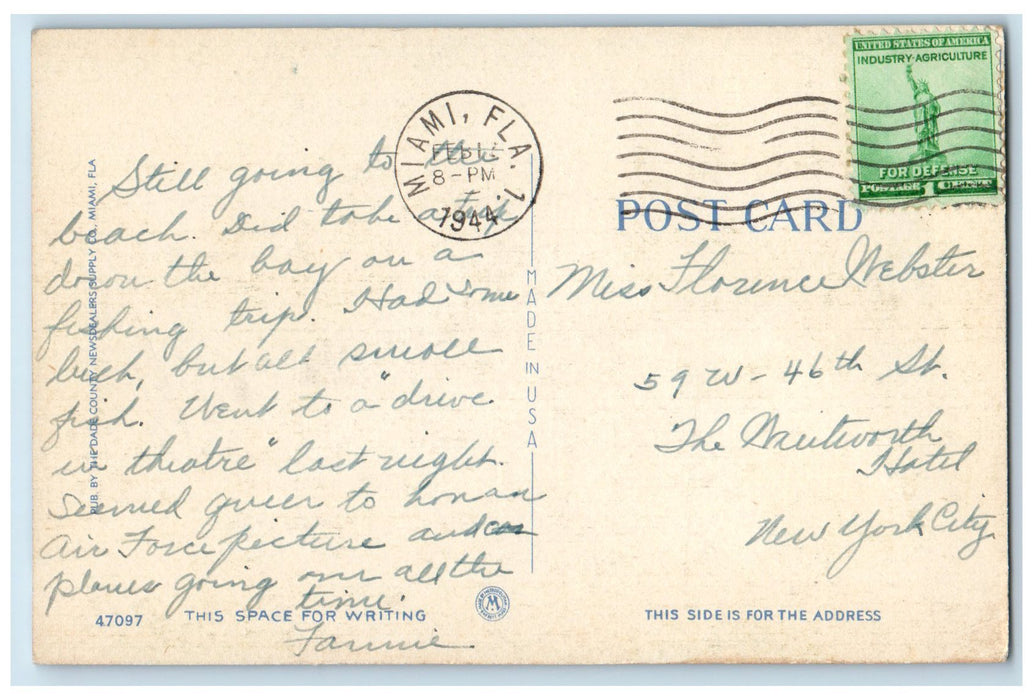 Still going to the
beach. Did take a
down the bay on a
fishing trip. Had some
luck, but all small
fish. Went to a "drive
in theatre" last night.
Seemed queer to have an
Air Force picture and
planes going over all the
time.
Fannie
47097 THIS SPACE FOR WRITING
PUB. BY THE DADE COUNTY NEWSDEALERS SUPPLY CO. MIAMI, FLA
MADE IN USA
MIAMI, FLA. 1
FEB 12
8-PM
1944
UNITED STATES OF AMERICA
INDUSTRY-AGRICULTURE
FOR DEFENSE
POSTAGE 1 CENT
POST CARD
Miss Florence Webster
59 W - 46th St.
The Wentworth
Hotel
New York City
THIS SIDE IS FOR THE ADDRESS